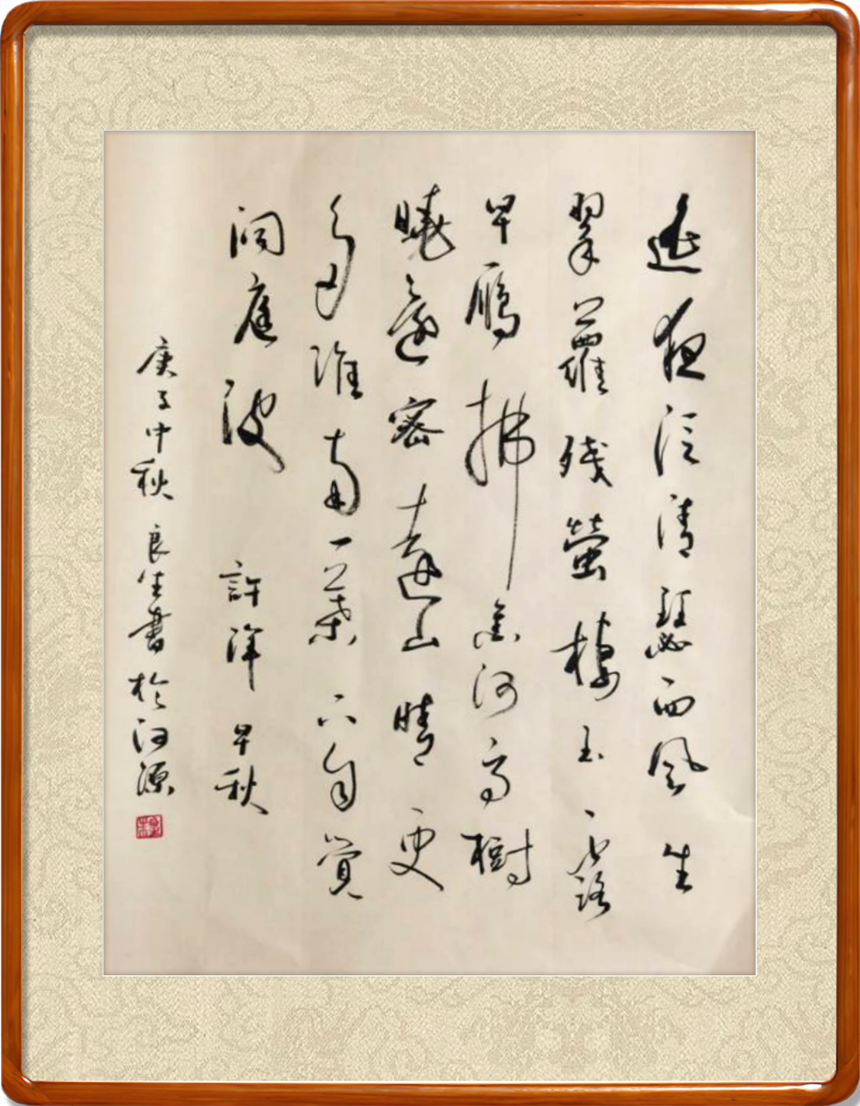 遙夜泛清瑟西風生
翠蘿殘螢棲玉露
早鴈拂金河高樹
曉還密遠山晴更
多淮南一葉下自覺
洞庭波 許渾 早秋
庚子中秋 良生書於河源